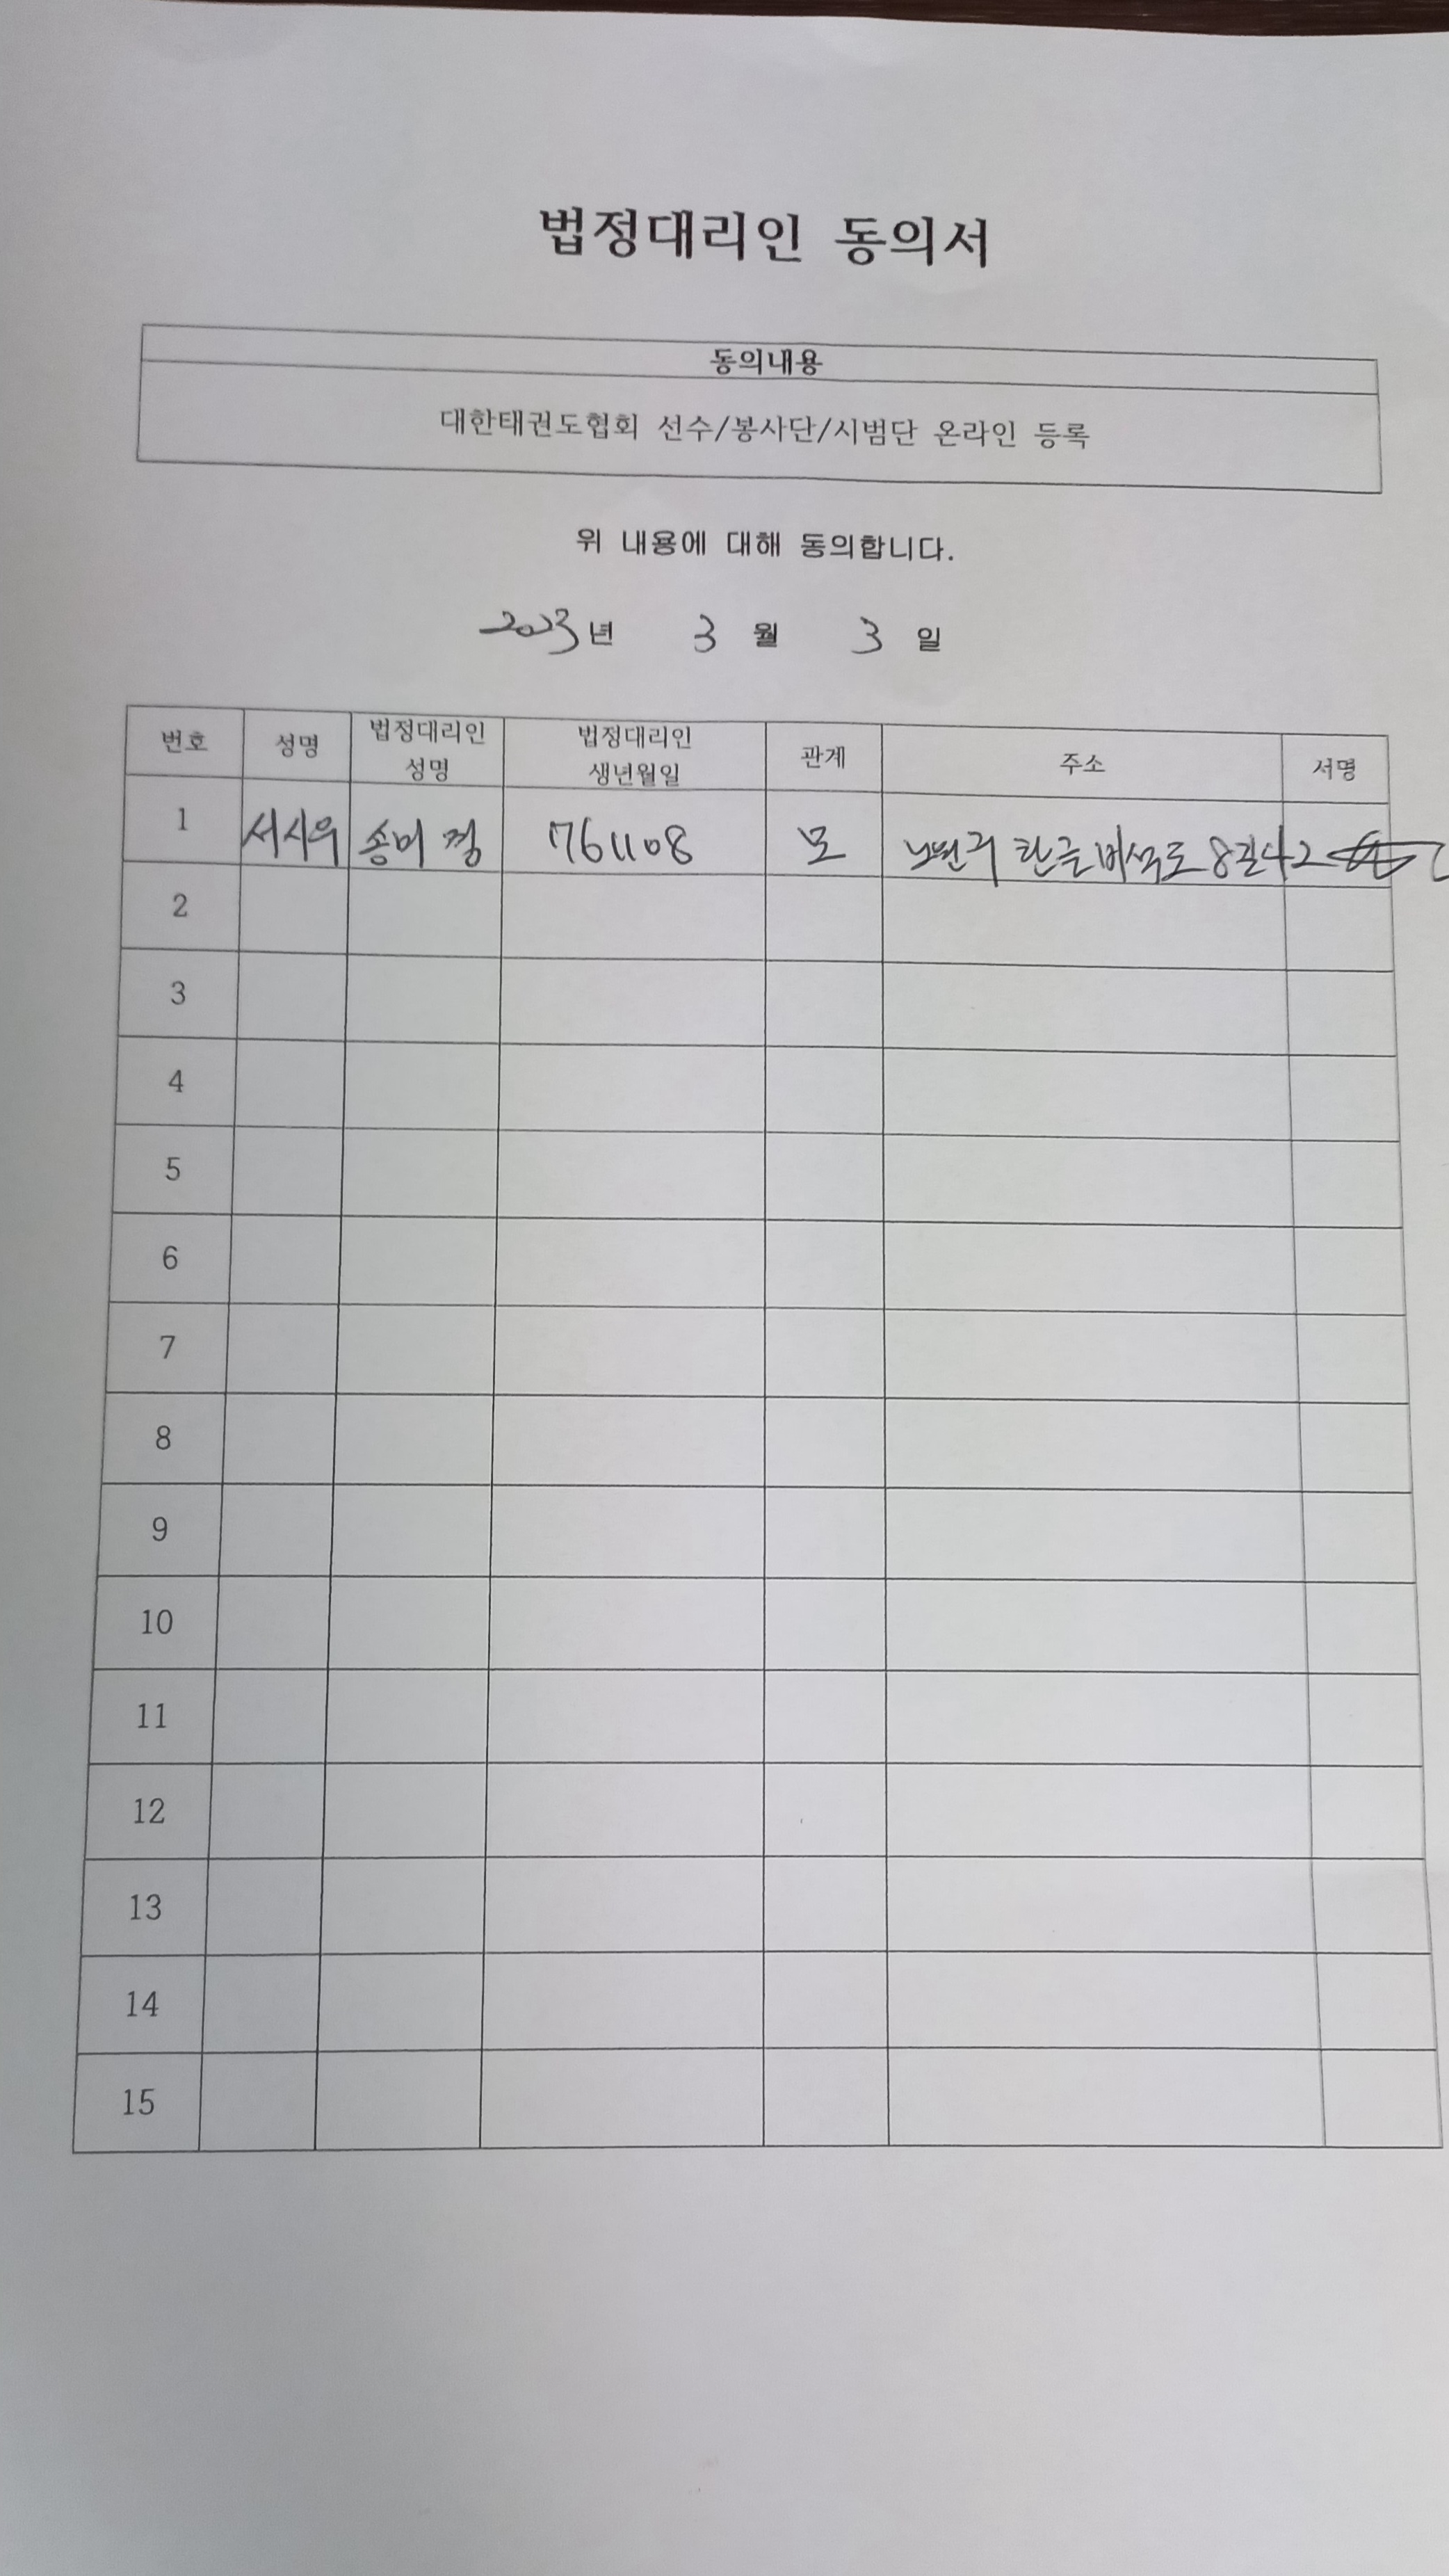 법정대리인 동의서
동의내용
대한태권도협회 선수/봉사단/시범단 온라인 등록
위 내용에 대해 동의합니다.
2023년 3월 3일
번호 성명 법정대리인 성명 법정대리인 생년월일 관계 주소 서명
1 서시우 송미정 761108 모 노원구 한글비석로8길42
2
3
4
5
6
7
8
9
10
11
12
13
14
15